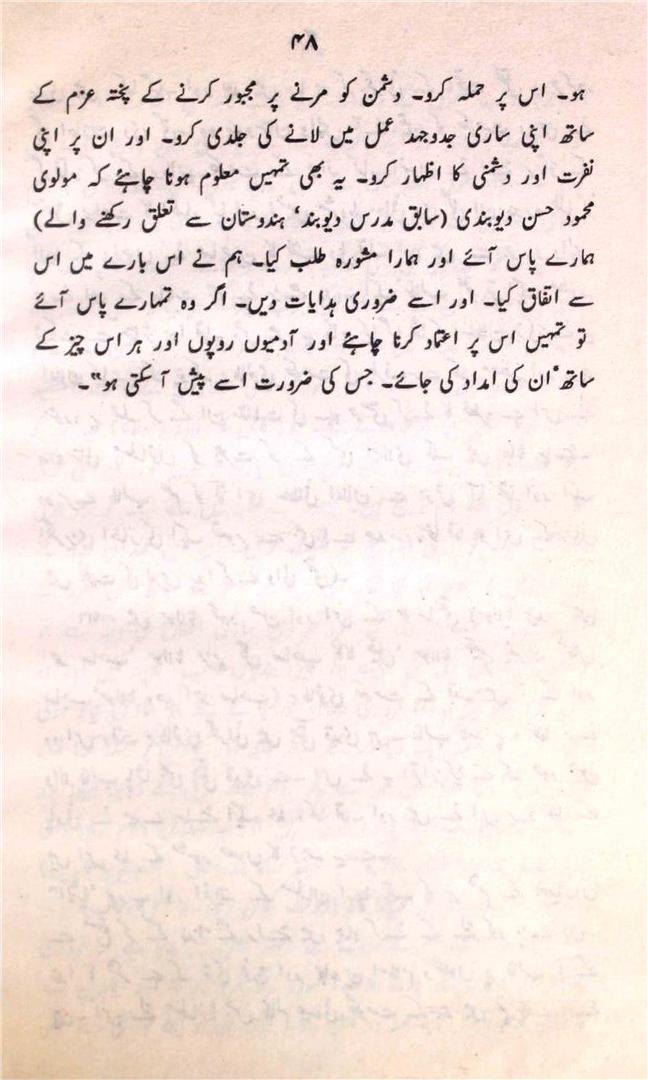 ۴۸
ہو۔ اس پر حملہ کرو۔ دشمن کو مرنے پر مجبور کرنے کے پختہ عزم کے
ساتھ اپنی ساری جدوجہد عمل میں لانے کی جلدی کرو۔ اور ان پر اپنی
نفرت اور دشمنی کا اظہار کرو۔ یہ بھی تمہیں معلوم ہونا چاہئے کہ مولوی
محمود حسن دیوبندی (سابق مدرس دیوبند‘ ہندوستان سے تعلق رکھنے والے)
ہمارے پاس آئے اور ہمارا مشورہ طلب کیا۔ ہم نے اس بارے میں اس
سے اتفاق کیا۔ اور اسے ضروری ہدایات دیں۔ اگر وہ تمہارے پاس آئے
تو تمہیں اس پر اعتماد کرنا چاہئے اور آدمیوں روپوں اور ہر اس چیز کے
ساتھ‘ ان کی امداد کی جائے۔ جس کی ضرورت اسے پیش آ سکتی ہو"۔